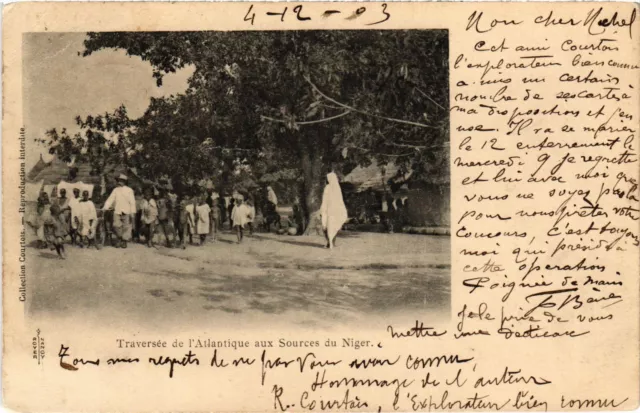 4-12-03
Mon cher Michel
Cet ami Courtois
l'explorateur bien connu
a mis un certain
nombre de ses cartes à
ma disposition et j'en
use. Il va se marier
le 12 enterrement le
mercredi 9 je regrette
et lui avec moi que
vous ne soyez pas là
pour nous prêter votre
concours, c'est toujours
moi qui préside à
cette opération
Poignée de main
je le prie de vous
mettre une dédicace
Collection Courtois. — Reproduction interdite.
Traversée de l'Atlantique aux Sources du Niger.
Tous mes regrets de ne pas vous avoir connu
Hommage de l'auteur
R. Courtois, l'Explorateur bien connu